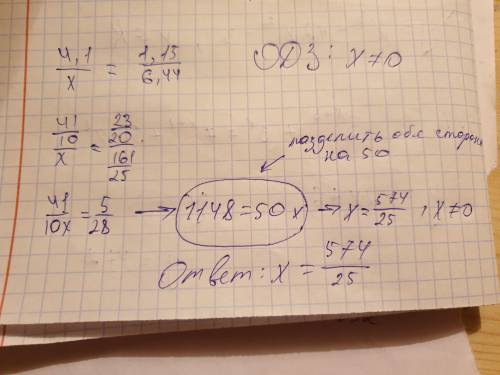 4,1/x = 1,15/6,44 ОДЗ: x≠0
41/10/x = 23/20/161/25
разделить обе стороны
на 50
41/10x = 5/28 → 1148=50x → x=574/25, x≠0
Ответ: x = 574/25